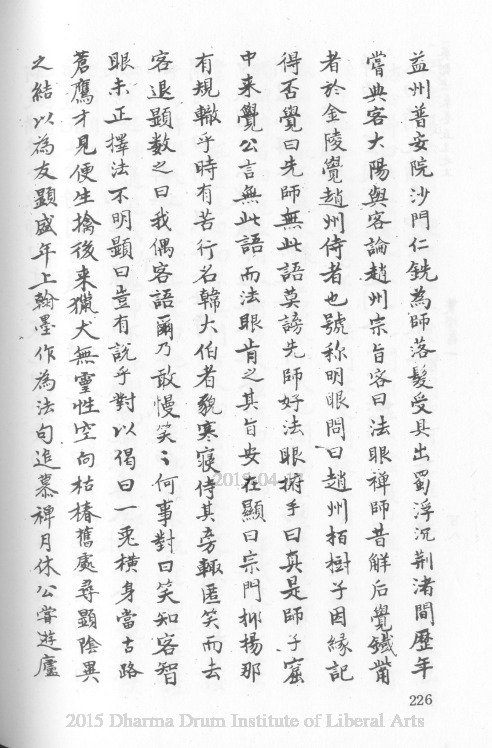 益州普安院沙門仁銑為師落髮受具出蜀浮沉荆渚間歷年
嘗典客大陽與客論趙州宗旨客曰法眼禪師昔觧后覺鐵觜
者於金陵覺趙州侍者也號称明眼問曰趙州栢樹子因緣記
得否覺曰先師無此語莫謗先師好法眼拊手曰真是師子窟
中来覺公言無此語而法眼肯之其旨安在顯曰宗門抑揚那
有規轍乎時有苦行名韓大伯者貌寒寢侍其旁輙匿笑而去
客退顯數之曰我偶客語爾乃敢慢笑〻何事對曰笑知客智
眼未正擇法不明顯曰豈有說乎對以偈曰一兎橫身當古路
蒼鷹才見便生擒後来獵犬無靈性空向枯樁舊處尋顯陰異
之結以為友顯盛年工翰墨作為法句追慕禪月休公甞遊廬
226
2015 Dharma Drum Institute of Liberal Arts